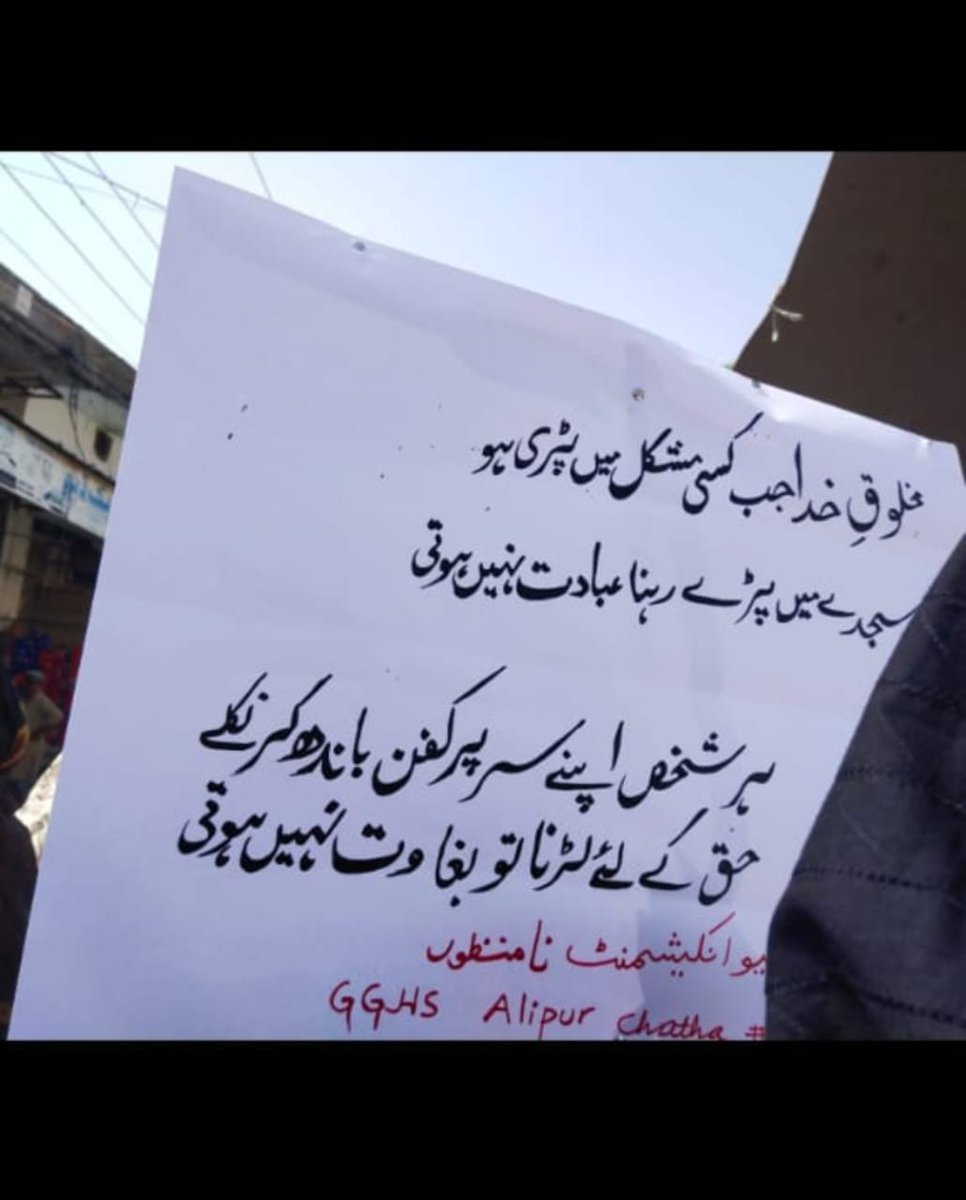 مخلوقِ خدا جب کسی مشکل میں پڑی ہو
سجدے میں پڑے رہنا عبادت نہیں ہوتی
ہر شخص اپنے سر پر کفن باندھ کر نکلے
حق کے لئے لڑنا تو بغاوت نہیں ہوتی
یو انکیشمنٹ نامنظور
GGHS Alipur Chatha #